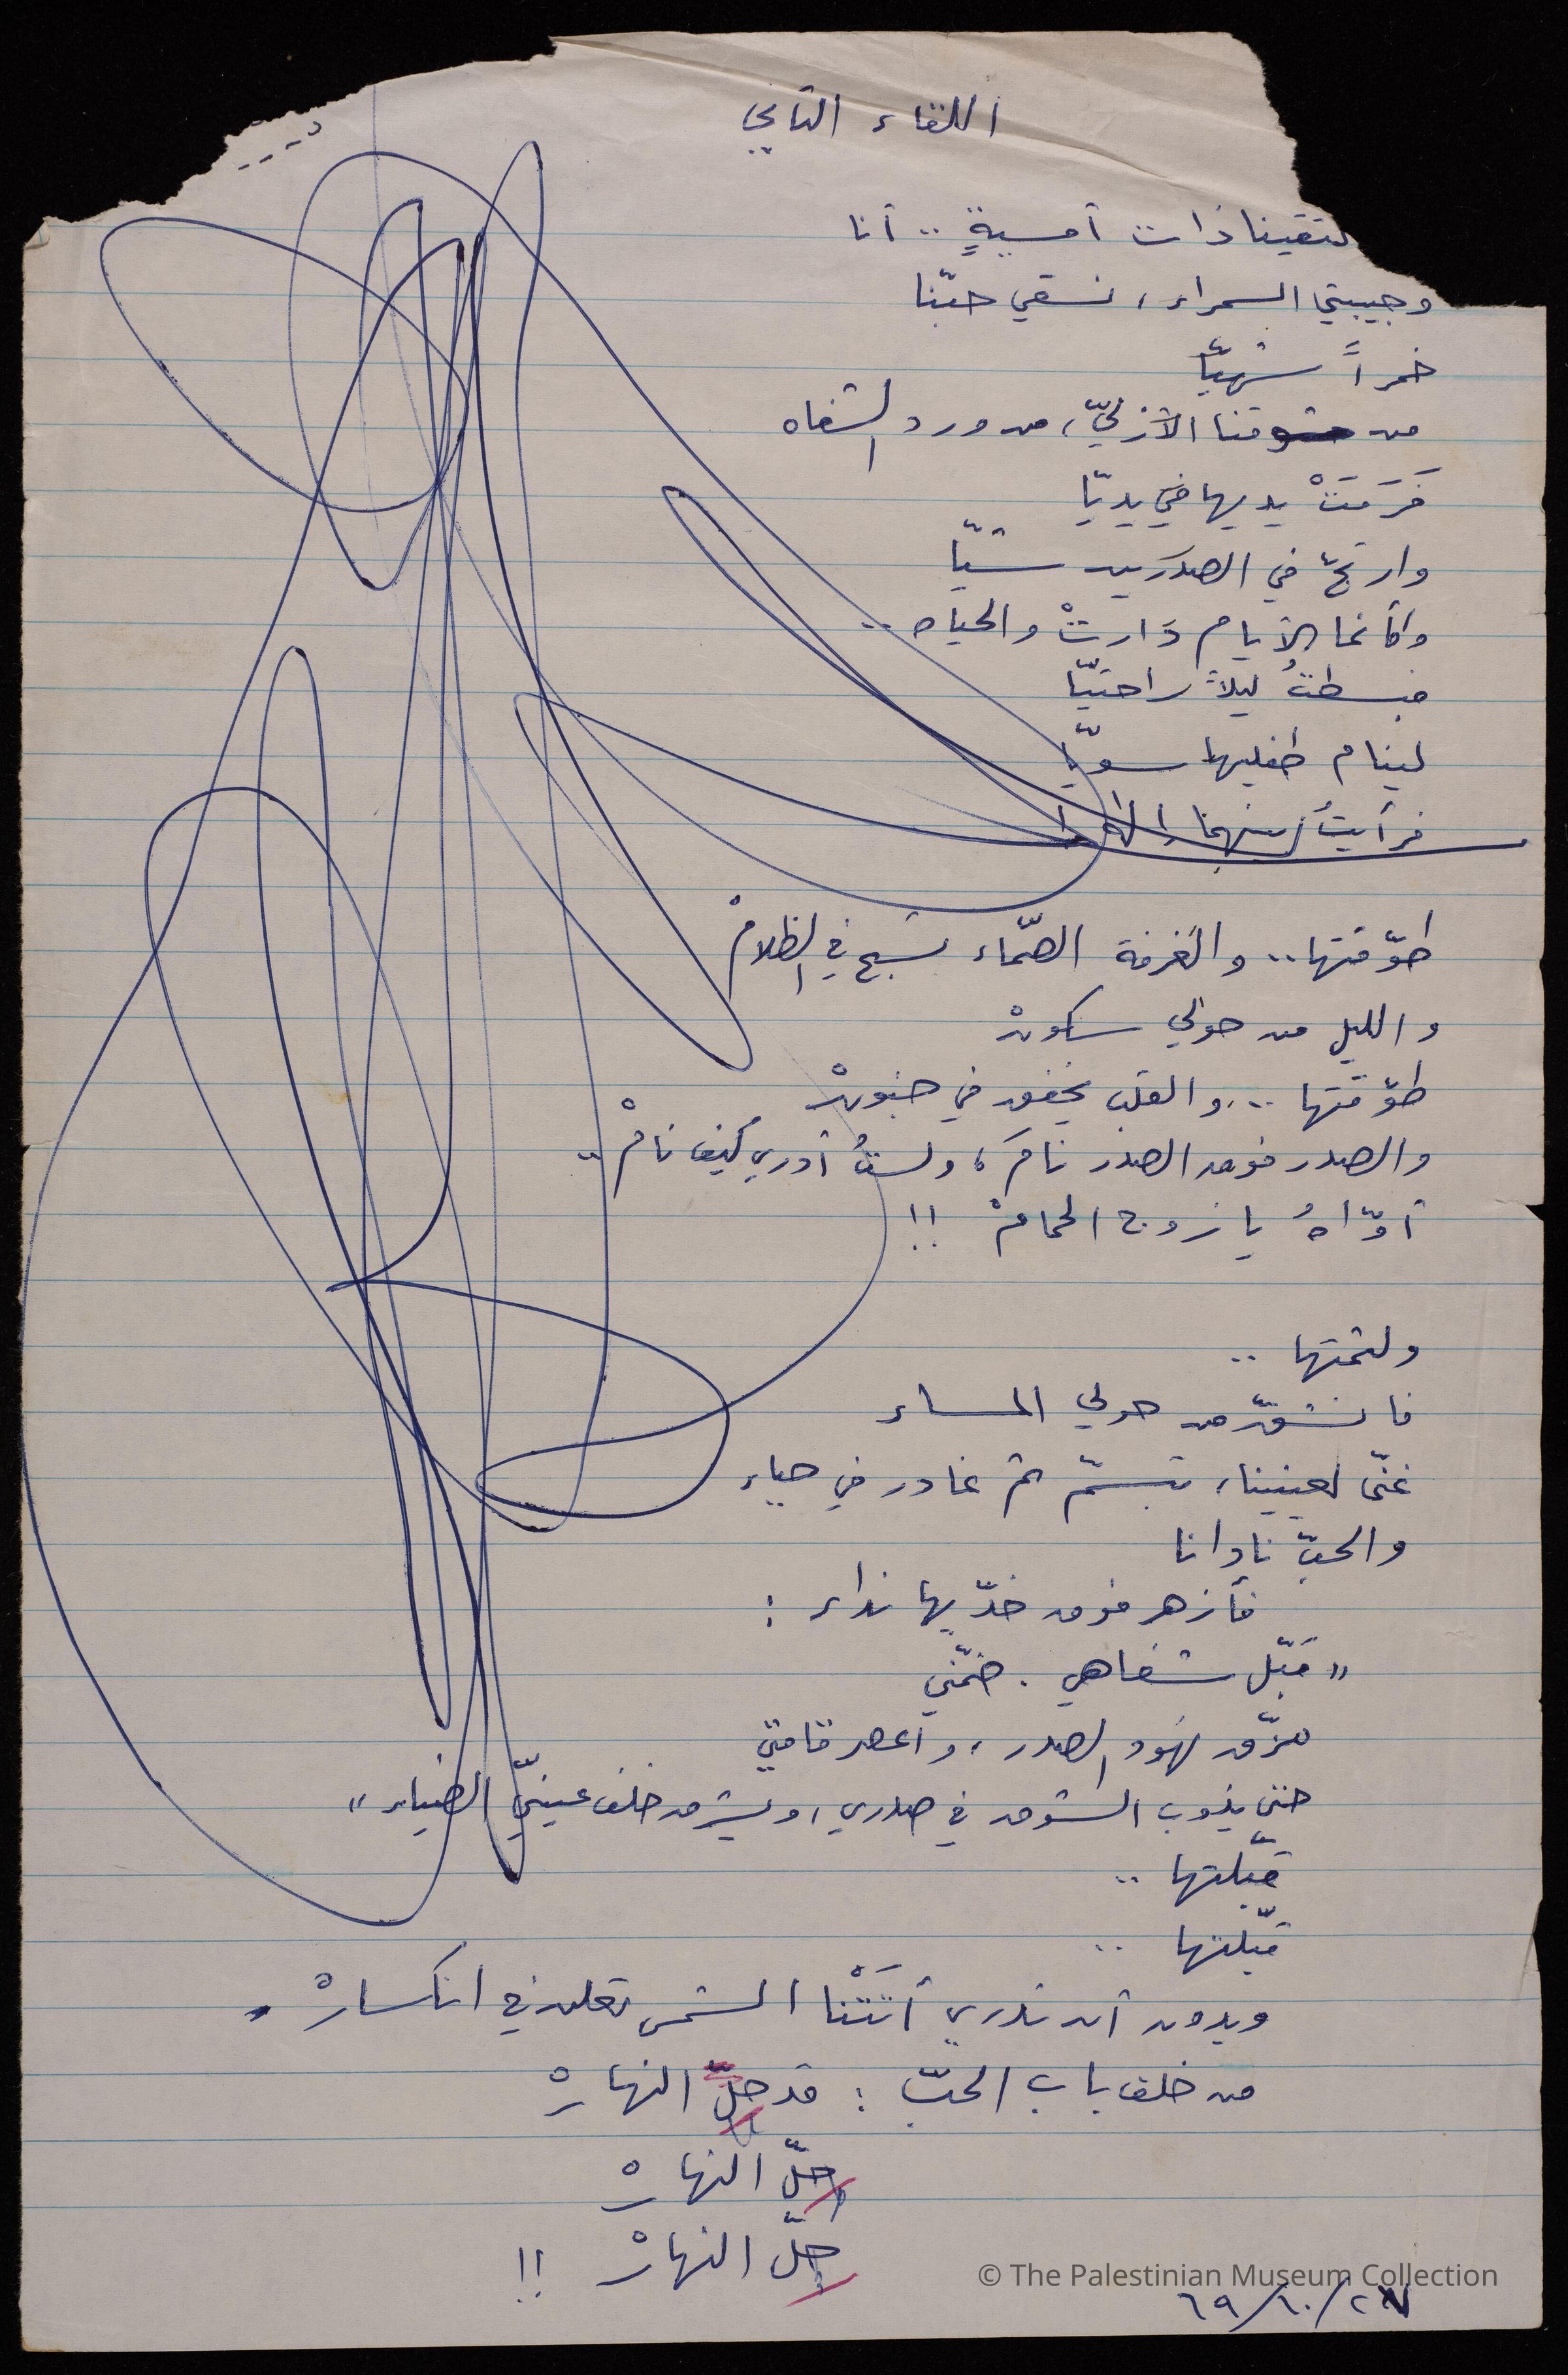 اللقاء الثاني
لتقينا ذات أمسيةٍ .. أنا
وحبيبتي السمراء، نسقي حبّنا
خمراً شهيّا
من شوقنا الأزليّ، من ورد الشفاه
فَرَمَتْ يديها في يديّا
وارتجّ في الصدرين شيّا
وكأنما الأيام دَارتْ والحياه ..
فبسطتُ ليلاً راحتيّا
لينام طفليها سويّا
فرأيتُ
طوّقتها .. والغرفة الصمّاء تسبح في الظلامْ
والليل من حولي سكونْ
طوّقتها ... والقلب يخفق في جنونْ
والصدر فوق الصدر نامَ، ولستُ أدري كيف نامْ ..
أوّاهُ يا زوج الحمامْ !!
ولثمتها ..
فانشقّ من حولي المساء
غنّى لعينينا، تبسّم ثم غادر في حياء
والحبّ نادانا
فأزهر فوق خدّيها نداء :
"قبّل شفاهي . ضمّني
مزّق نهود الصدر، وأعصر قامتي
حتى يذوب الشوق في صدري، ويشرق خلف عينيّ الضياء"
قبّلتها ..
قبّلتها ..
وبدون أن ندري أتَتْنا الشمس تعلن في انكسارْ
من خلف باب الحبّ : قد حلّ النهارْ
حلّ النهارْ
حلّ النهارْ !!
© The Palestinian Museum Collection
٢٧/١٠/٦٩